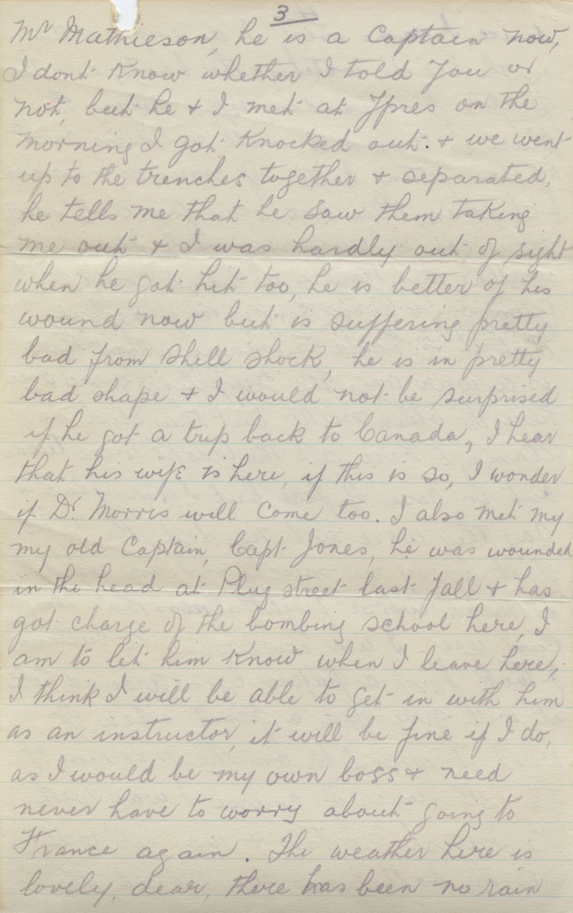 3
Mr Mathieson, he is a Captain now,
I dont know whether I told you or
not, but he & I met at Ypres on the
morning I got knocked out. & we went
up to the trenches together & separated,
he tells me that he saw them taking
me out & I was hardly out of sight
when he got hit too, he is better of his
wound now but is suffering pretty
bad from shell shock, he is in pretty
bad shape & I would not be surprised
if he got a trip back to Canada, I hear
that his wife is here, if this is so, I wonder
if Dr. Morris will come too. I also met my
my old Captain, Capt Jones, he was wounded
in the head at Plug street last fall & has
got charge of the bombing school here, I
am to let him know when I leave here,
I think I will be able to get in with him
as an instructor, it will be fine if I do,
as I would be my own boss & need
never have to worry about going to
France again. The weather here is
lovely, dear, there has been no rain